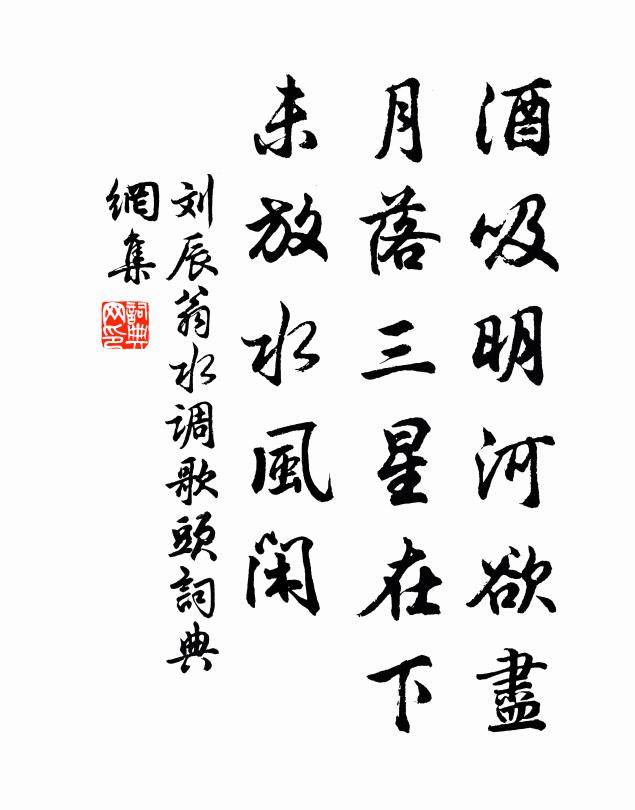 酒吸明河欲盡
月落三星在下
未放水風閑
刘辰翁水调歌頭詞典
網集
詞典
网印